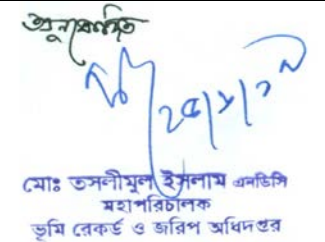 অনুমোদিত
মোঃ তসলীমুল ইসলাম এনডিসি
মহাপরিচালক
ভূমি রেকর্ড ও জরিপ অধিদপ্তর